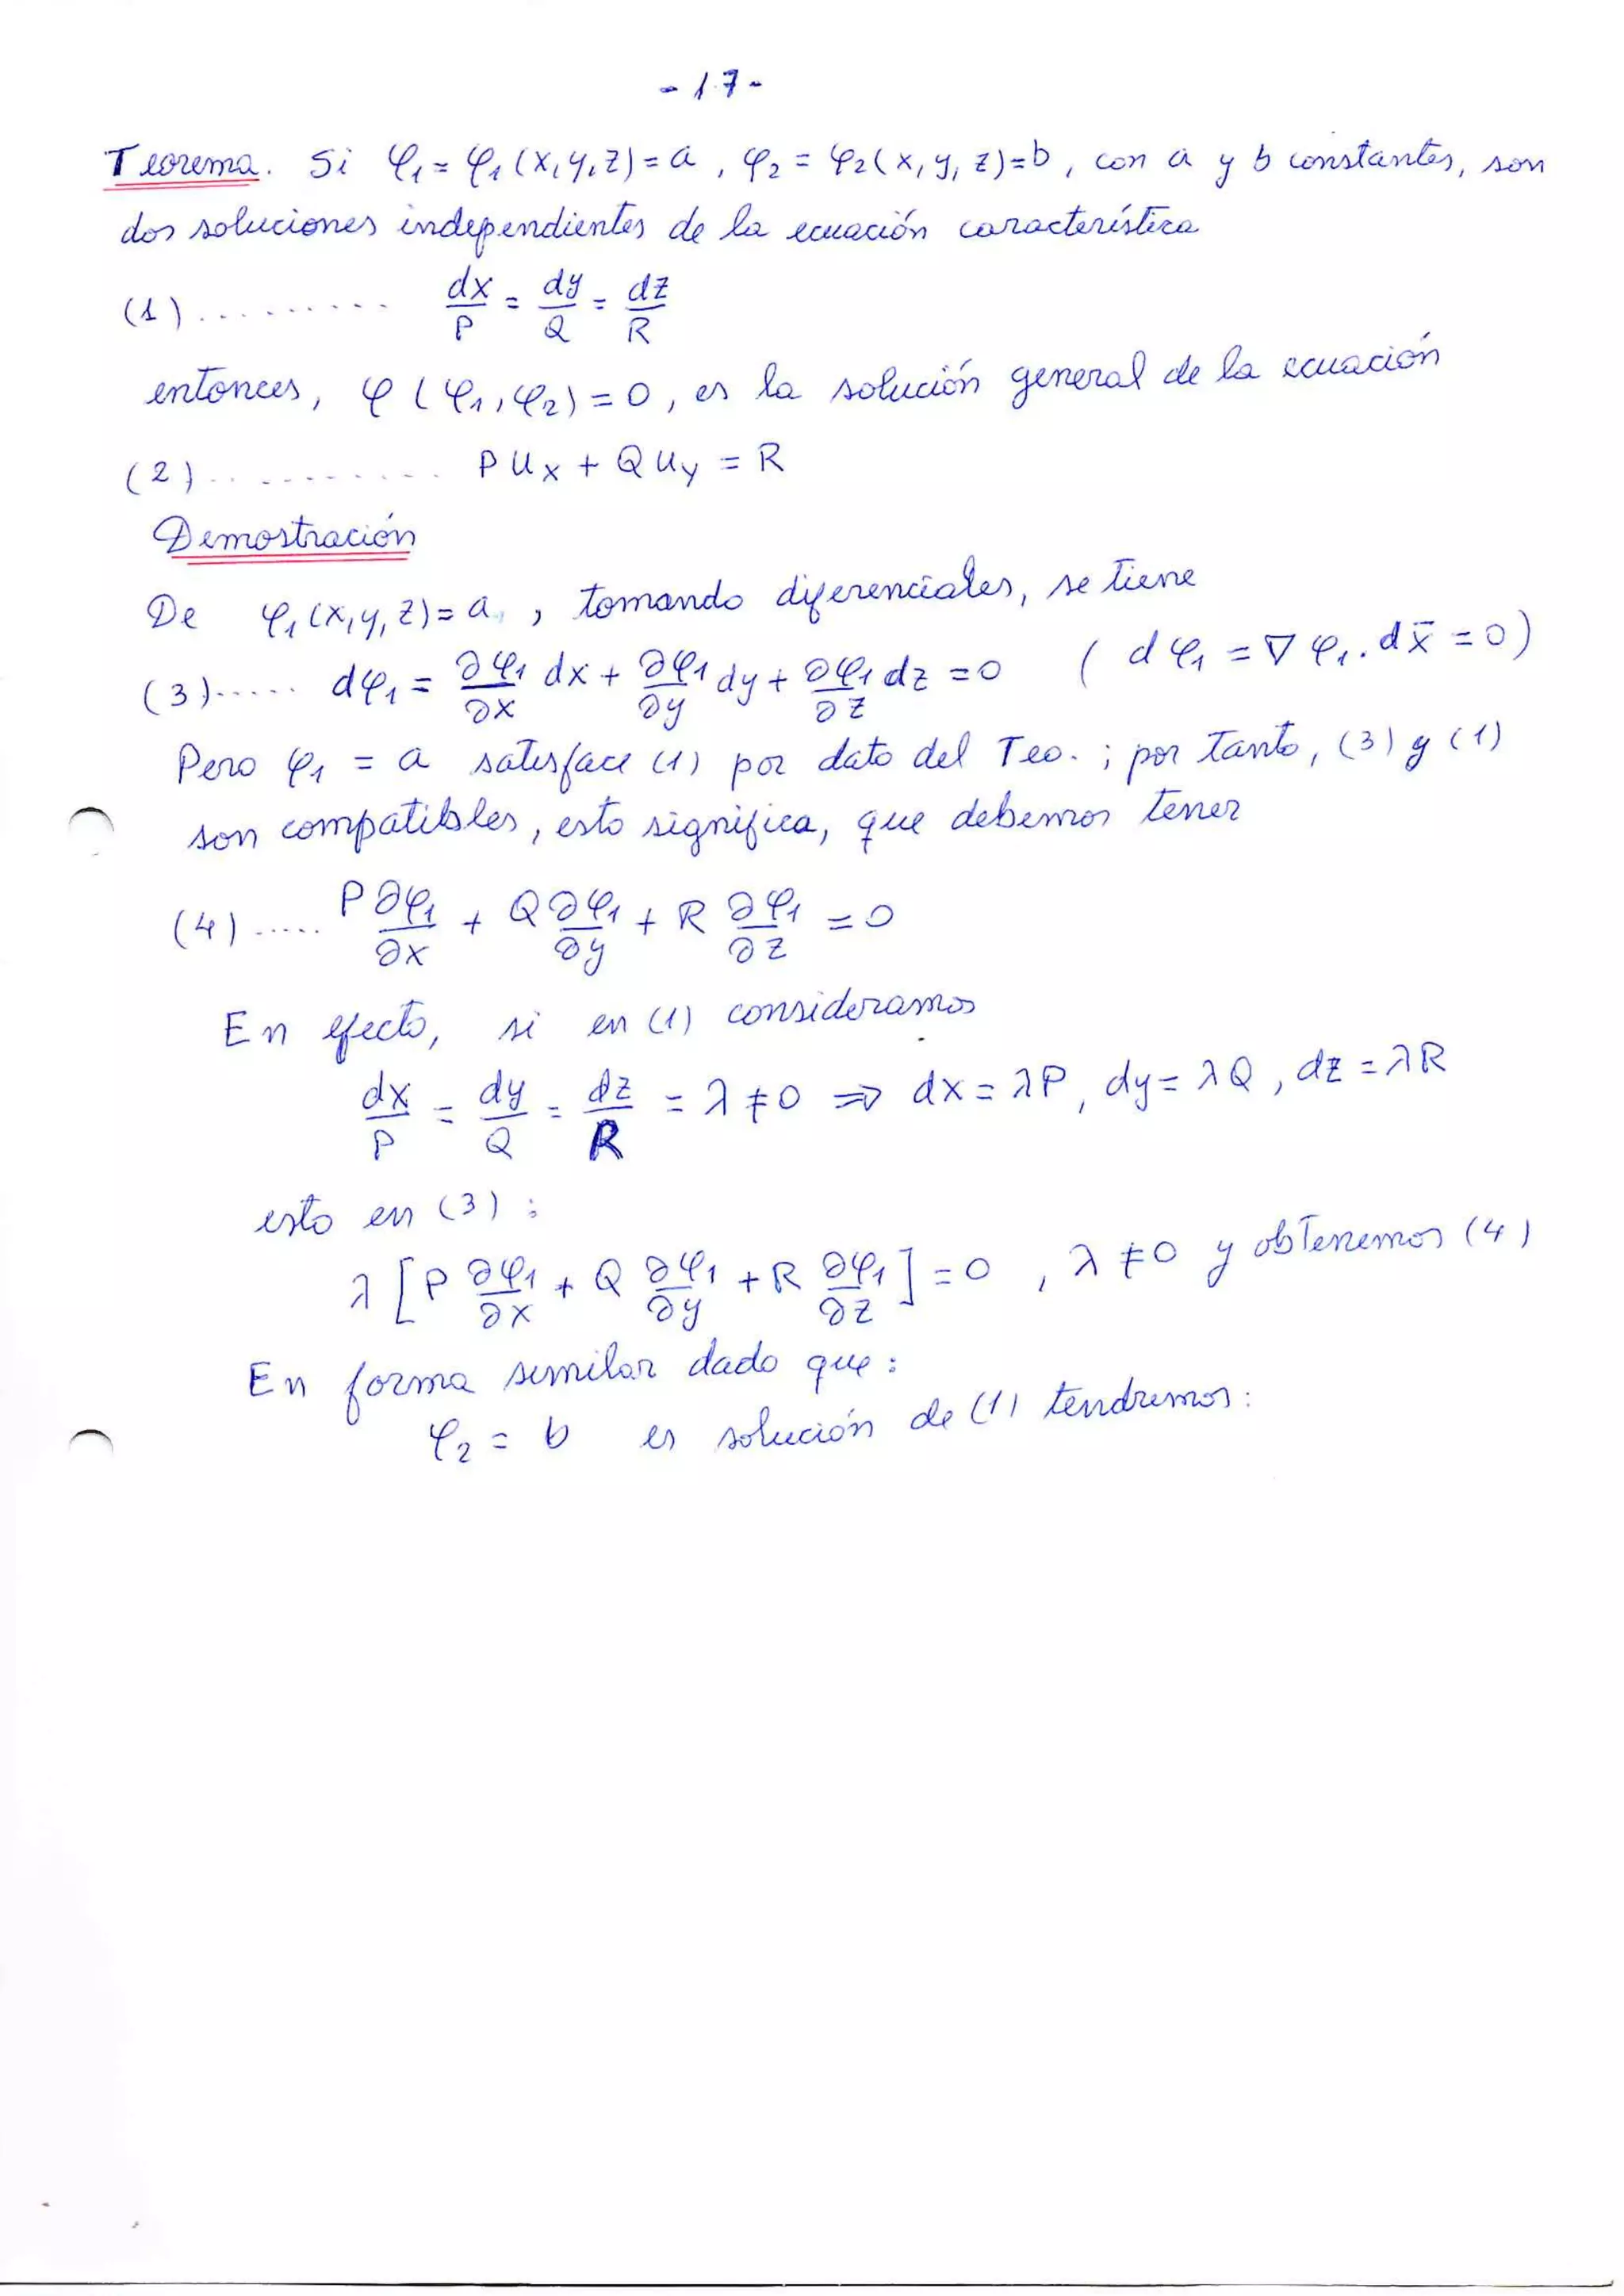 - 17 -
Teorema. Si φ₁ = φ₁(x,y,z) = a , φ₂ = φ₂(x, y, z) = b , con a y b constantes, son
dos soluciones independientes de la ecuación característica
(1) ......... dx/P = dy/Q = dz/R
entonces, φ(φ₁,φ₂) = 0, es la solución general de la ecuación
(2) .......... P Ux + Q Uy = R
Demostración
De φ₁(x,y,z) = a , tomando diferenciales, se tiene
(3) ..... dφ₁ = ∂φ₁/∂x dx + ∂φ₁/∂y dy + ∂φ₁/∂z dz = 0 ( dφ₁ = ∇φ₁. dx̄ = 0 )
Pero φ₁ = a satisface (1) por dato del Teo. ; por tanto, (3) y (1)
son compatibles, esto significa, que debemos tener
(4) ..... P ∂φ₁/∂x + Q ∂φ₁/∂y + R ∂φ₁/∂z = 0
En efecto, si en (1) consideramos
dx/P = dy/Q = dz/R = λ ≠ 0 ⇒ dx = λP, dy = λQ, dz = λR
esto en (3) :
λ [ P ∂φ₁/∂x + Q ∂φ₁/∂y + R ∂φ₁/∂z ] = 0 , λ ≠ 0 y obtenemos (4)
En forma similar dado que :
φ₂ = b es solución de (1) tendremos :